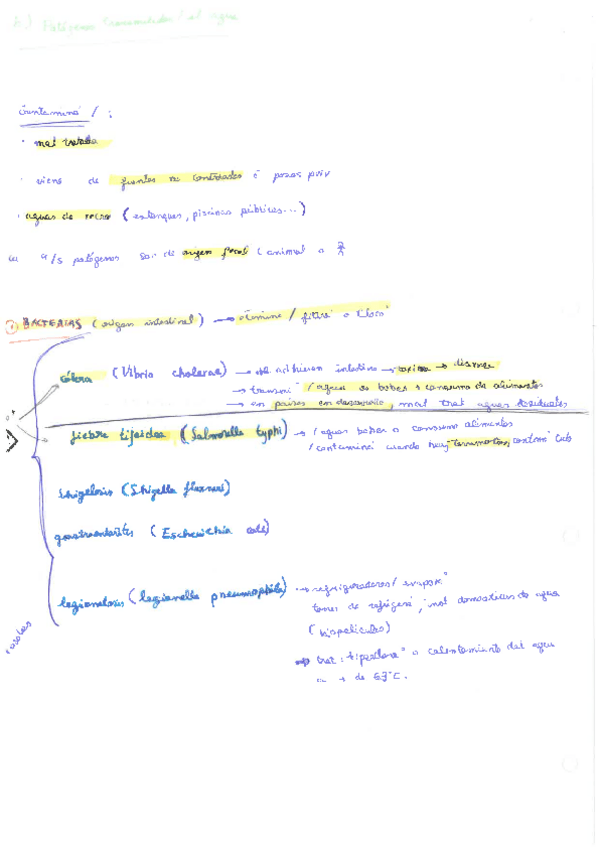 Patógenos transmitidos / el agua
Contaminá / :
· mal tratada
· viene de fuentes no controladas é pozos priv
· aguas de recreo ( estanques, piscinas públicas... )
patógenos son de origen fecal ( animal o
① BACTERIAS ( origen intestinal ) → / filtrá o cloro
cólera ( Vibrio cholerae) → se adhieren intestino → toxina → diarrea
→ transmi / aguas de bebes o consumo de alimentos
→ en países en desarrollo, mal trat aguas residuales
fiebre tifoidea ( Salmonella typhi) → / aguas beber o consumo alimentos
/ contaminá cuando hay terremotos,
Shigelosis ( Shigella flexneri)
gastroenteritis ( Escherichia coli)
legionelosis ( legionella pneumophila) → refrigeradores / evapor
torres de refrigerá, domésticas de agua
( biopelículas )
→ trat : o calentamiento del agua
+ de °C.